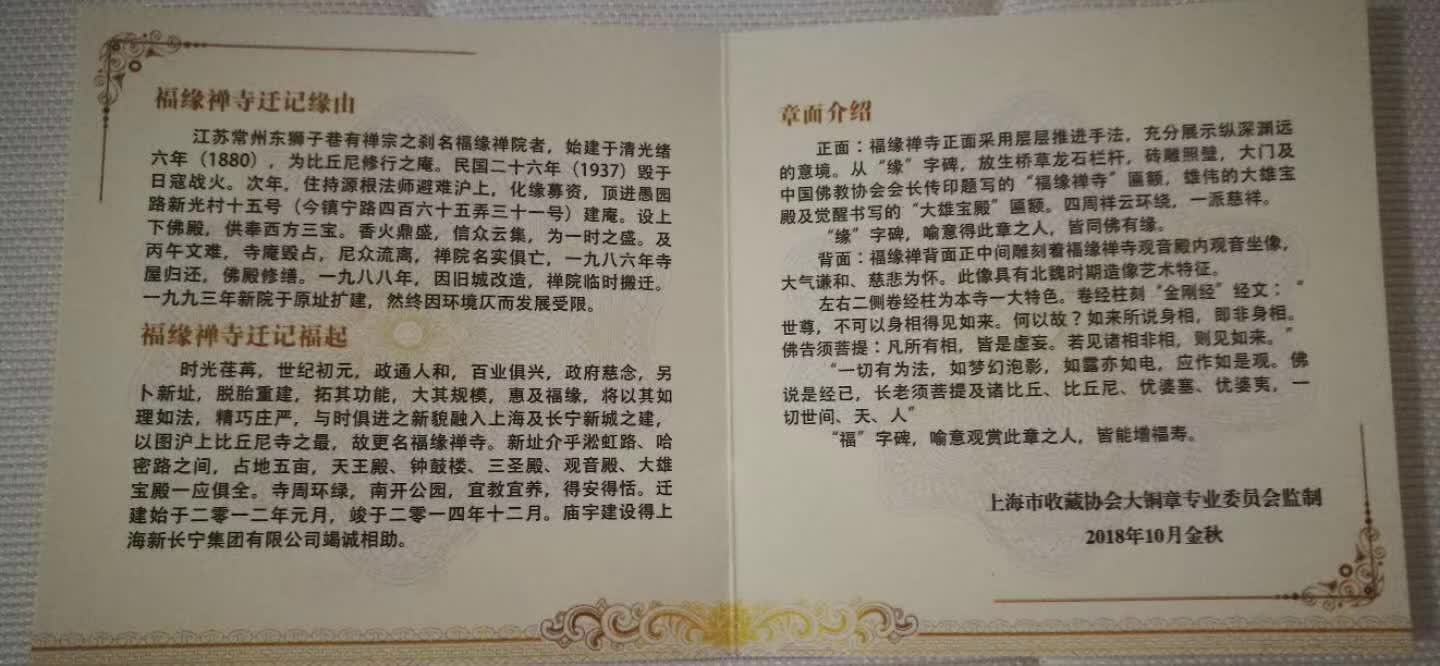 福缘禅寺迁记缘由
江苏常州东狮子巷有禅宗之刹名福缘禅院者，始建于清光绪
六年（1880），为比丘尼修行之庵。民国二十六年（1937）毁于
日寇战火。次年，住持源根法师避难沪上，化缘募资，顶进愚园
路新光村十五号（今镇宁路四百六十五弄三十一号）建庵。设上
下佛殿，供奉西方三宝。香火鼎盛，信众云集，为一时之盛。及
丙午文难，寺庵毁占，尼众流离，禅院名实俱亡，一九八六年寺
屋归还，佛殿修缮。一九八八年，因旧城改造，禅院临时搬迁。
一九九三年新院于原址扩建，然终因环境仄而发展受限。
福缘禅寺迁记福起
时光荏苒，世纪初元，政通人和，百业俱兴，政府慈念，另
卜新址，脱胎重建，拓其功能，大其规模，惠及福缘，将以其如
理如法，精巧庄严，与时俱进之新貌融入上海及长宁新城之建，
以图沪上比丘尼寺之最，故更名福缘禅寺。新址介乎淞虹路、哈
密路之间，占地五亩，天王殿、钟鼓楼、三圣殿、观音殿、大雄
宝殿一应俱全。寺周环绿，南开公园，宜教宜养，得安得恬。迁
建始于二零一二年元月，竣于二零一四年十二月。庙宇建设得上
海新长宁集团有限公司竭诚相助。
章面介绍
正面：福缘禅寺正面采用层层推进手法，充分展示纵深渊远
的意境。从“缘”字碑，放生桥草龙石栏杆，砖雕照壁，大门及
中国佛教协会会长传印题写的“福缘禅寺”匾额，雄伟的大雄宝
殿及觉醒书写的“大雄宝殿”匾额。四周祥云环绕，一派慈祥。
“缘”字碑，喻意得此章之人，皆同佛有缘。
背面：福缘禅背面正中间雕刻着福缘禅寺观音殿内观音坐像，
大气谦和、慈悲为怀。此像具有北魏时期造像艺术特征。
左右二侧卷经柱为本寺一大特色。卷经柱刻“金刚经”经文：“
世尊，不可以身相得见如来。何以故？如来所说身相，即非身相。
佛告须菩提：凡所有相，皆是虚妄。若见诸相非相，则见如来。”
“一切有为法，如梦幻泡影，如露亦如电，应作如是观。佛
说是经已，长老须菩提及诸比丘、比丘尼、优婆塞、优婆夷，一
切世间、天、人”
“福”字碑，喻意观赏此章之人，皆能增福寿。
上海市收藏协会大铜章专业委员会监制
2018年10月金秋